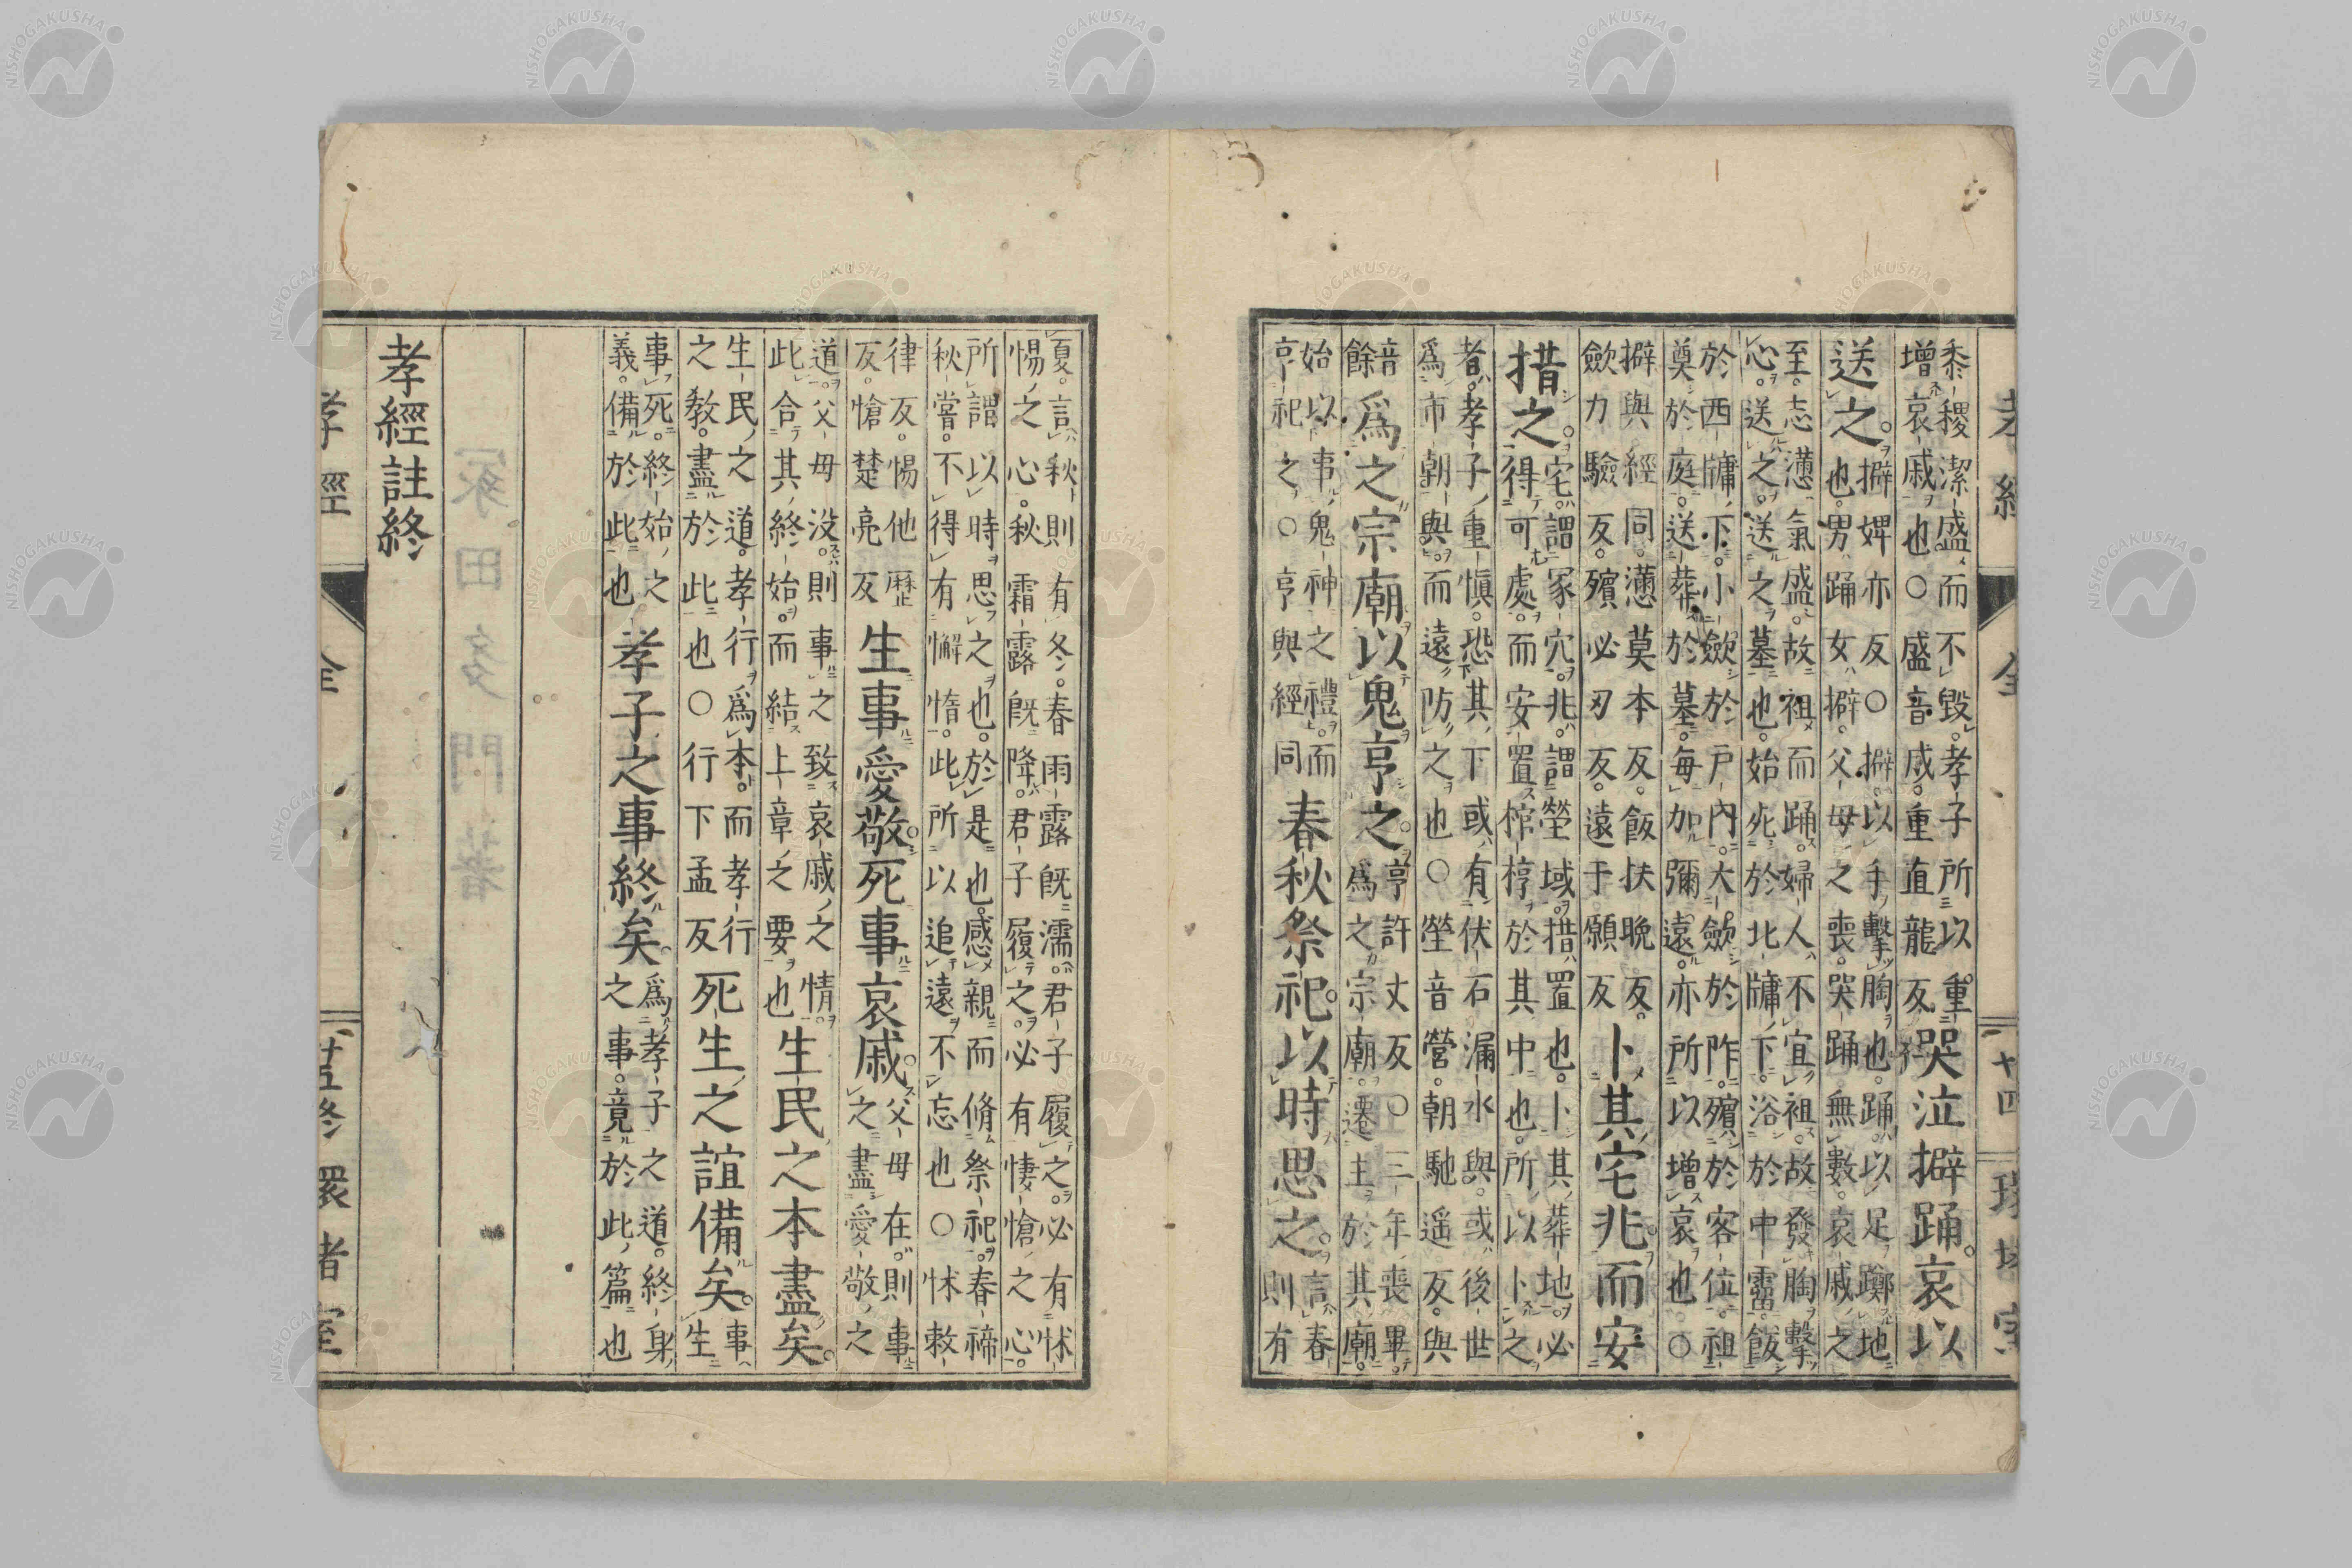 孝經 全 十四
黍稷潔盛而不毀。孝子所以重
增哀戚也○盛音成。重直龍反
哭泣擗踊。哀以
送之。
擗婢亦反○擗以手擊胸也。踊以足躑地
也。男踊女擗。父母之喪。哭踊無數。哀戚之
至。志懣氣盛。故袒而踊。婦人不宜袒。故發胸擊
心。送之。送之墓也。始死於北牖下。浴於中霤。飯
於西牖下。小歛於戶內。大歛於阼。殯於客位。祖
奠於庭。送葬於墓。每加彌遠。亦所以增哀也○
擗與經同。懣莫本反。飯扶晚反。
歛力驗反。殯必刃反。遠于願反
卜其宅兆。而安
措之。
宅謂冢穴。兆謂塋域。措置也。卜其葬地。必
得可處。而安置棺椁於其中也。所以卜之
者。孝子重慎。恐其下或有伏石漏水與。或後世
爲市朝與。而遠防之也○塋音營。朝馳遥反。與
音
餘
爲之宗廟以鬼亨之。
亨許丈反○三年喪畢
爲之宗廟。遷主於其廟。
始以事鬼神之禮。而
亨祀之○亨與經同
春秋祭祀。以時思之。
言春
則有
夏。言秋則有冬。春雨露既濡。君子履之。必有怵
惕之心。秋霜露既降。君子履之。必有悽愴之心。
所謂以時思之也。於是也。感親而脩祭祀。春禘
秋嘗。不得有懈惰。此所以追遠不忘也○怵敕
律反。惕他歷
反。愴楚亮反
生事愛敬。死事哀戚。
父母在。則事
之盡愛敬之
道。父母没。則事之致哀戚之情。
此合其終始。而結上章之要也
生民之本盡矣。
生民之道。孝行爲本。而孝行
之教。盡於此也○行下孟反
死生之誼備矣。
事
生
事死。終始之
義。備於此也
孝子之事終矣。
爲孝子之道。終身
之事。竟於此篇也
孝經註終
孝經 全 廿五終 環堵室